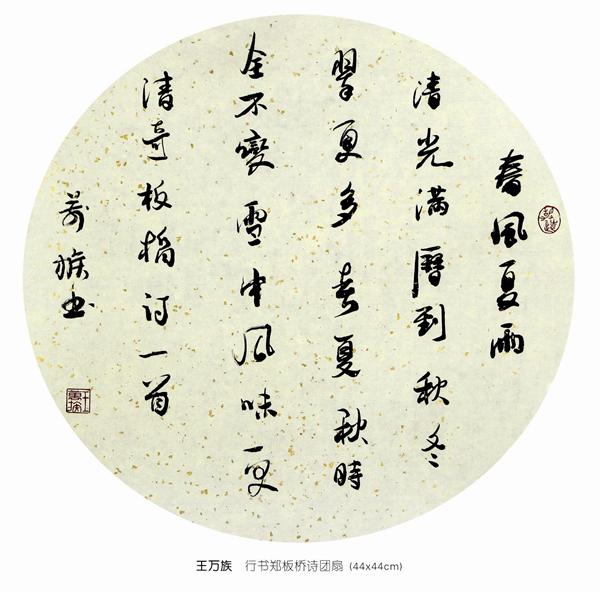 春風夏雨
清光满曆到秋冬
翠更多春夏秋時
全不變雪中風味更
清奇板橋詩一首
萬族書
王万族 行书郑板桥诗团扇 (44x44cm)